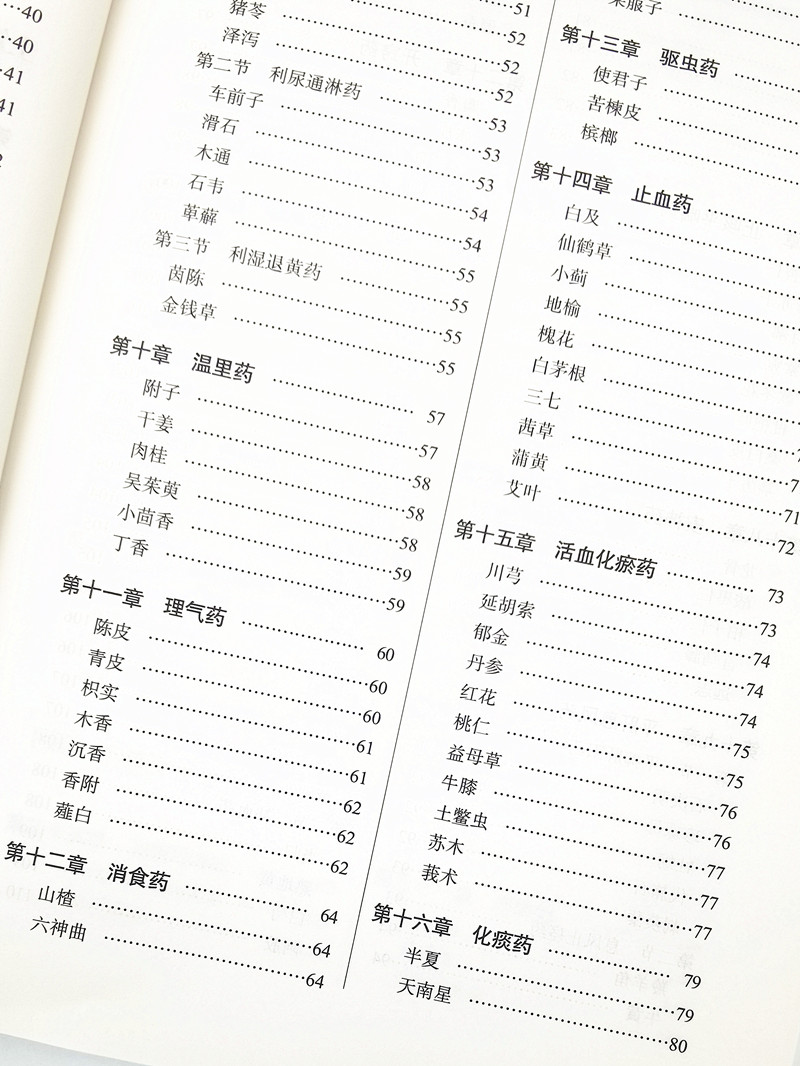 40
40
41
41
51
52
猪苓 52
泽泻 52
第二节 利尿通淋药 53
车前子 53
滑石 53
木通 54
石韦 54
萆薢 55
第三节 利湿退黄药 55
茵陈 55
金钱草 55
第十章 温里药 57
附子 57
干姜 58
肉桂 58
吴茱萸 58
小茴香 59
丁香 59
第十一章 理气药 60
陈皮 60
青皮 60
枳实 61
木香 61
沉香 62
香附 62
薤白 62
第十二章 消食药 64
山楂 64
六神曲 64
第十三章 驱虫药
使君子
苦楝皮
槟榔
第十四章 止血药
白及
仙鹤草
小蓟
地榆
槐花
白茅根
三七
茜草
蒲黄 71
艾叶 72
第十五章 活血化瘀药 73
川芎 73
延胡索 74
郁金 74
丹参 74
红花 75
桃仁 75
益母草 76
牛膝 76
土鳖虫 77
苏木 77
莪术 77
第十六章 化痰药 79
半夏 79
天南星 80